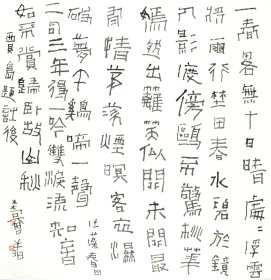 一春各無十日晴處處浮雲
將雨行野田春水碧於鏡
人影度傍鷗不驚桃華
嫣然出籬笑似開未開最
有情茅茨煙暝客衣濕
破夢午雞啼一聲 汪藻春日
二句三年得一吟雙淚流知音
如不賞歸臥故山秋
賈島題詩後